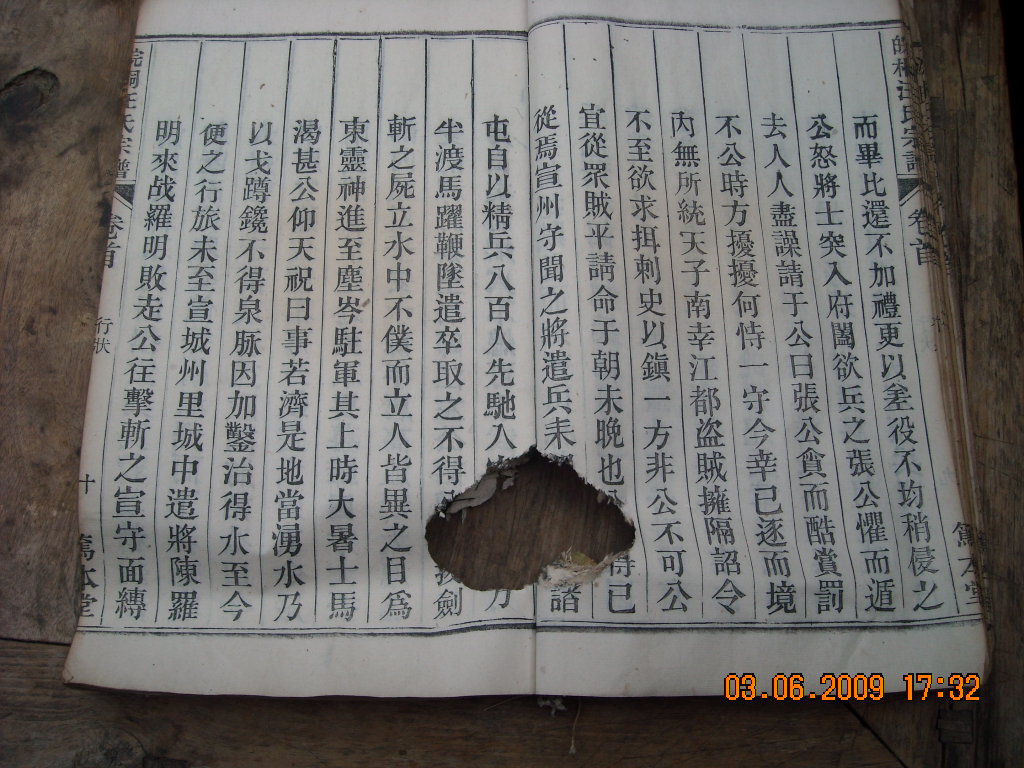 氏宗譜
卷首
而畢比還不加禮更以差役不均稍侵之
公怒將士突入府闔欲兵之張公懼而遁
去人人盡譟請于公曰張公貪而酷賞罰
不公時方擾擾何恃一守今幸已逐而境
內無所統天子南幸江都盜賊擁隔詔令
不至欲求揖刺史以鎮一方非公不可公
宜從眾賊平請命于朝未晚也得已
從焉宣州守聞之將遣兵來諸
屯自以精兵八百人先馳入乃
半渡馬躍鞭墜遣卒取之不得拔劍
斬之屍立水中不僕而立人皆異之日為
東靈神進至塵岑駐軍其上時大暑士馬
渴甚公仰天祝曰事若濟是地當湧水乃
以戈蹲鑱不得泉脉因加鑿治得水至今
便之行旅未至宣城州里城中遣將陳羅
明來战羅明敗走公往擊斬之宣守面縛
皖桐汪氏宗譜
卷首
行狀
十
篤本堂
03.06.2009 17:32